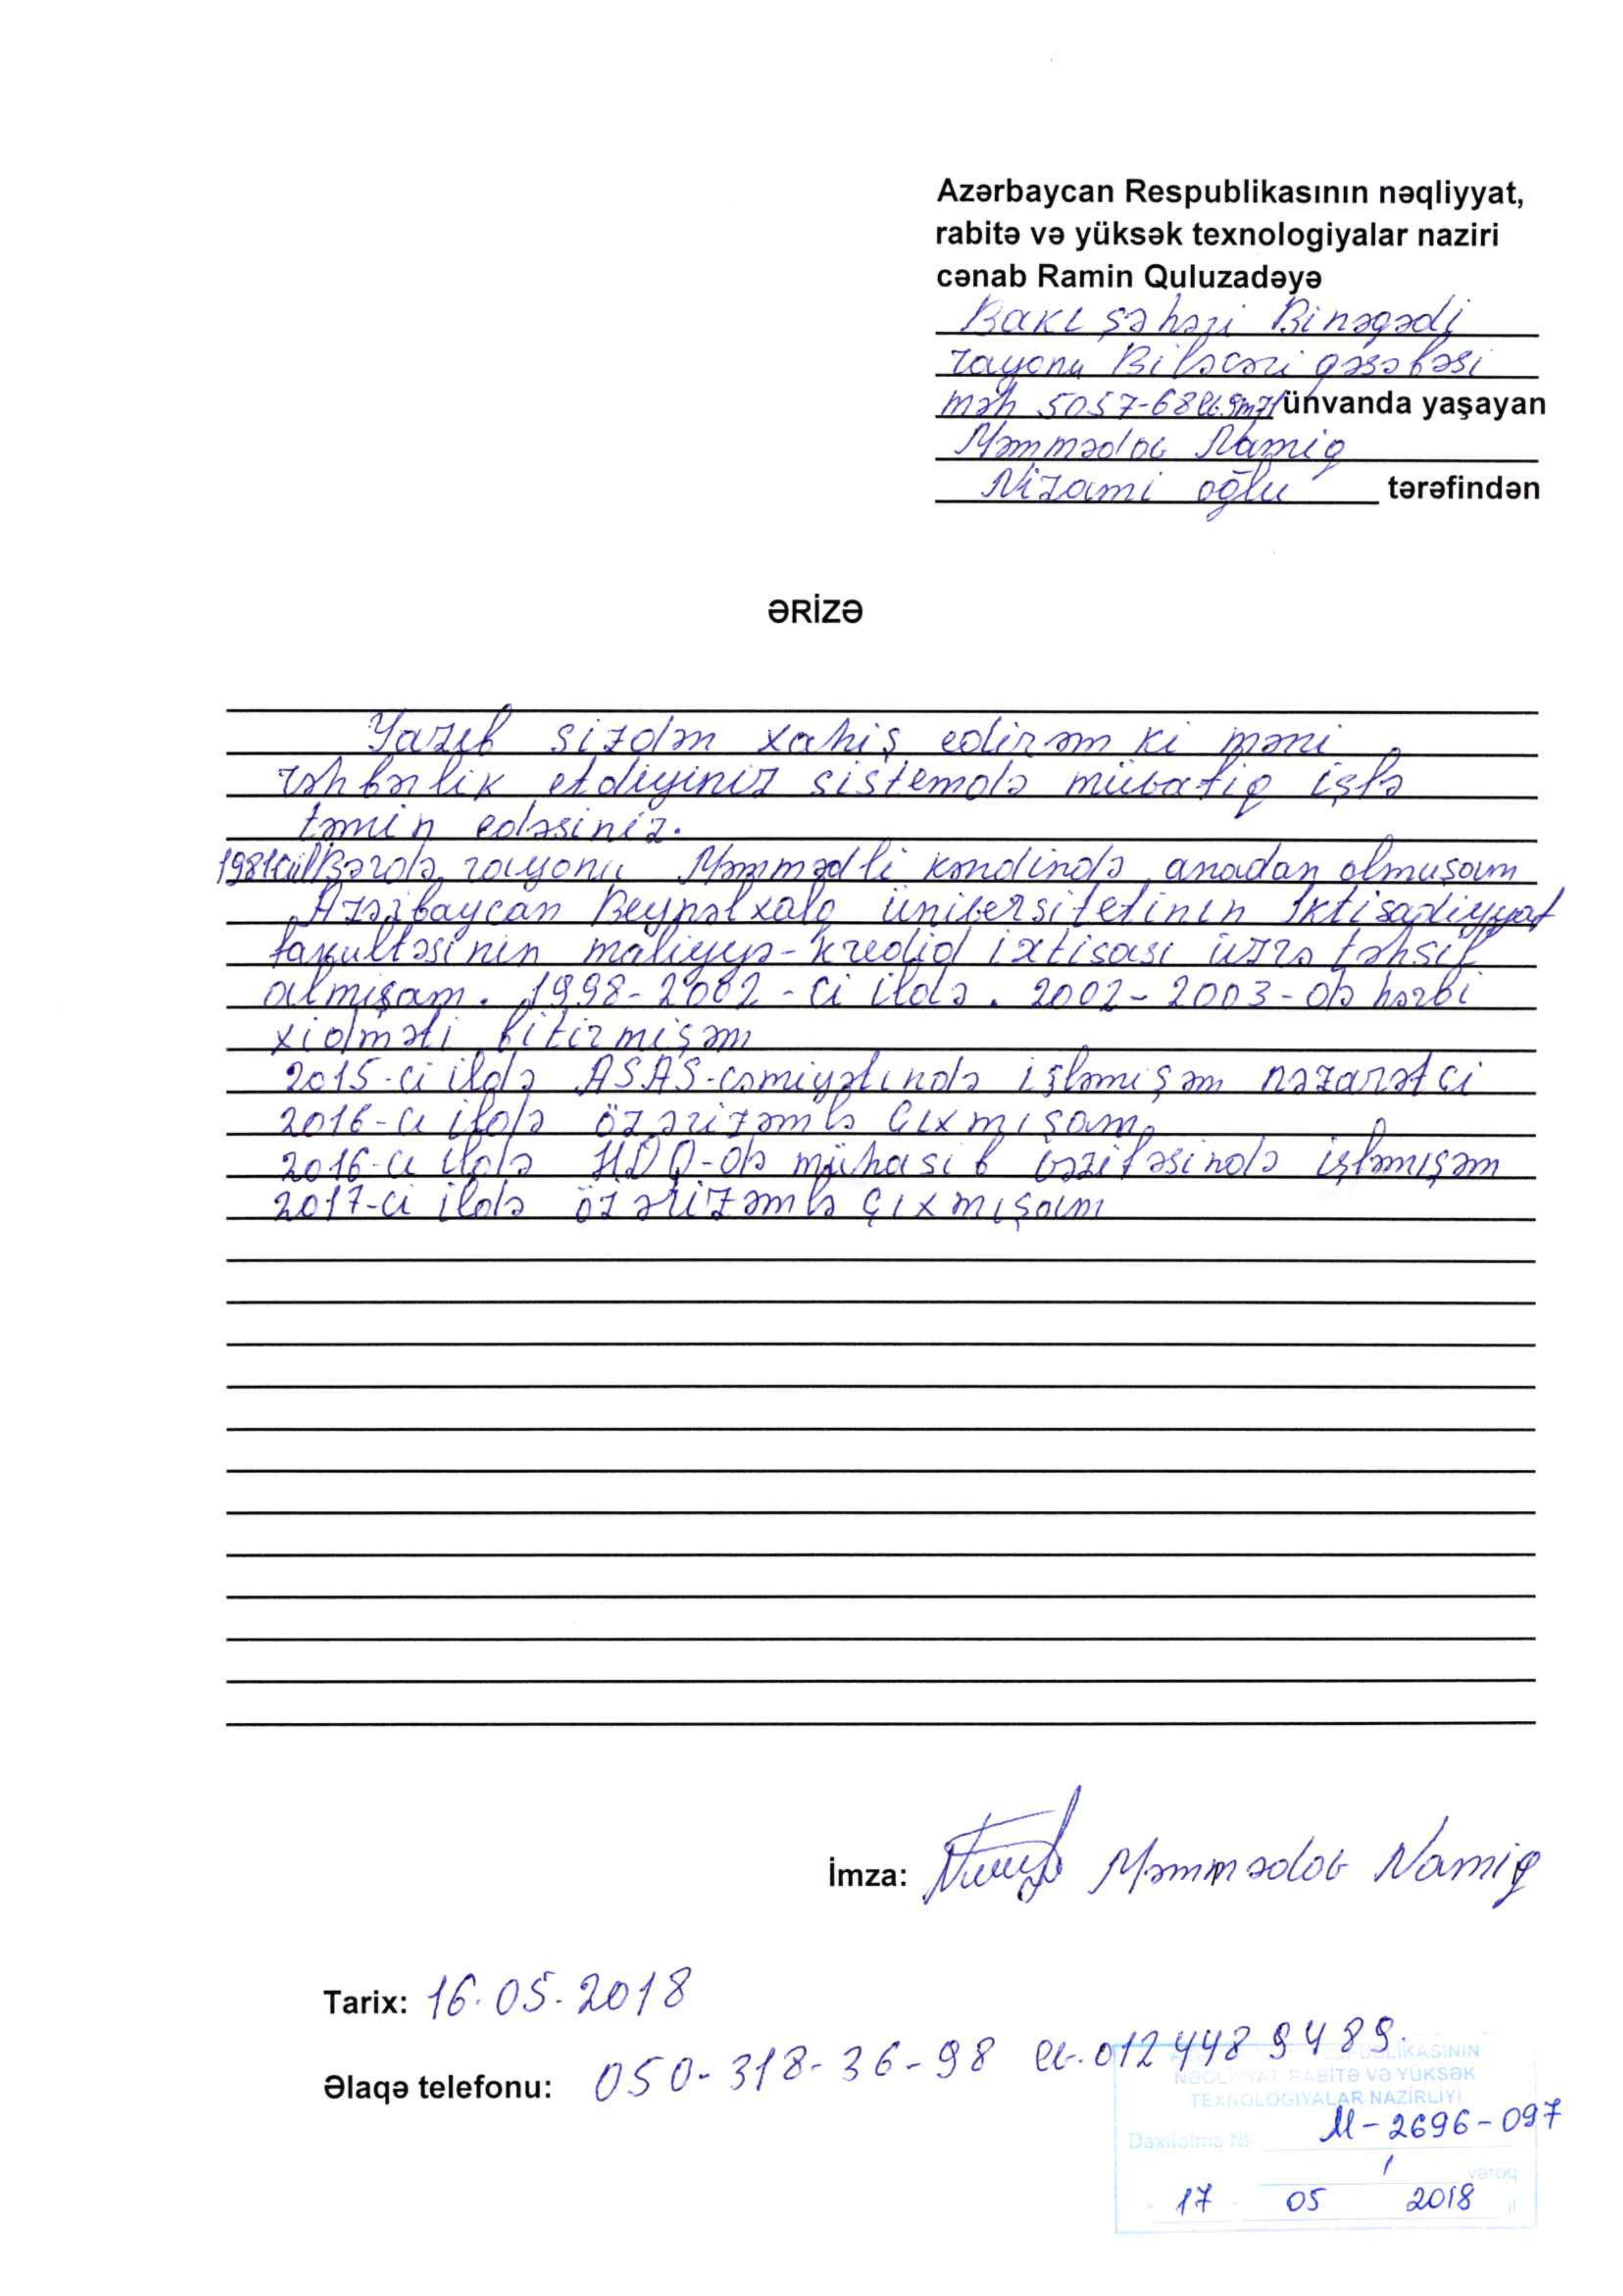 Azərbaycan Respublikasının nəqliyyat,
rabitə və yüksək texnologiyalar naziri
cənab Ramin Quluzadəyə
Bakı şəhəri Binəqədi
rayonu Biləcəri qəsəbəsi
məh 5057-68 ünvanda yaşayan
Məmmədov Namiq
Nizami oğlu tərəfindən
ƏRİZƏ
Yazıb sizdən xahiş edirəm ki məni
rəhbərlik etdiyiniz sistemdə müvafiq işlə
təmin edəsiniz.
Bərdə rayonu Məmmədli kəndində anadan olmuşam
Azərbaycan Beynəlxalq üniversitetinin İktisadiyyat
fakultəsinin maliyyə-kredid ixtisası üzrə təhsil
almışam. 1998-2002-ci ildə. 2002-2003-də hərbi
xidməti bitirmişəm
2015-ci ildə ASAS-cəmiyətində işləmişəm nəzarətçi
2016-cı ildə öz ərizəmlə çıxmışam
2016-cı ildə HDQ-də mühasib vəzifəsində işləmişəm
2017-ci ildə öz ərizəmlə çıxmışam
İmza: Məmmədov Namiq
Tarix: 16.05.2018
Əlaqə telefonu: 050-318-36-98 ev.012 448 94 89.
RESPUBLİKASININ
NƏQLİYYAT RABİTƏ VƏ YÜKSƏK
TEXNOLOGİYALAR NAZİRLİYİ
Daxilolma № M-2696-097
1 vərəq
17 05 2018 il